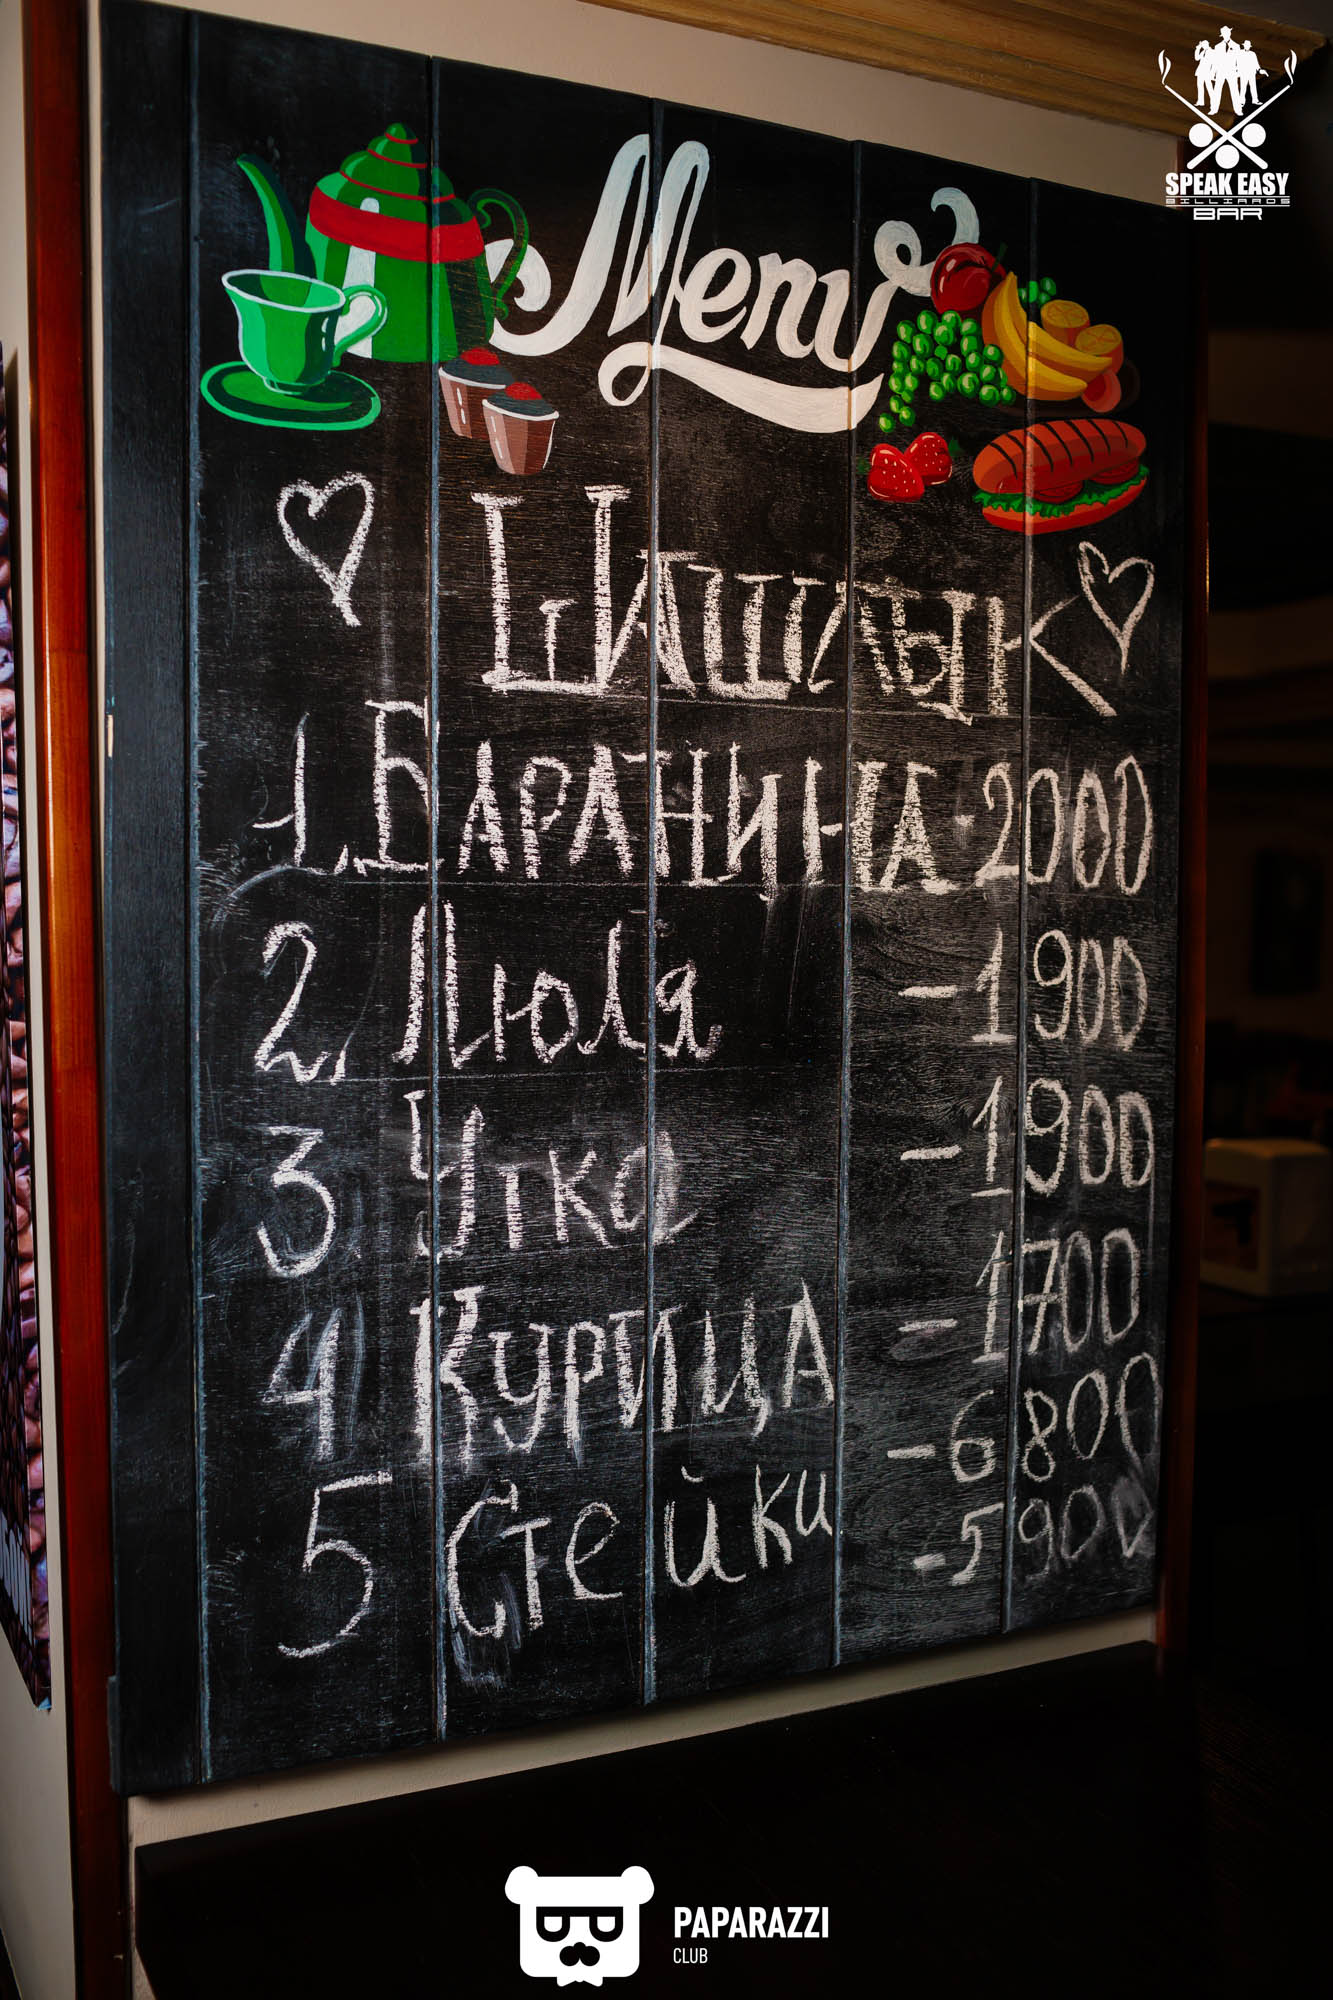 SPEAK EASY
BILLIARDS
BAR
Menu
Шашлык
1. Баранина - 2000
2. Люля - 1900
3 Утка - 1900
4 Курица - 1700
- 6800
5 Стейки - 5900
PAPARAZZI
CLUB